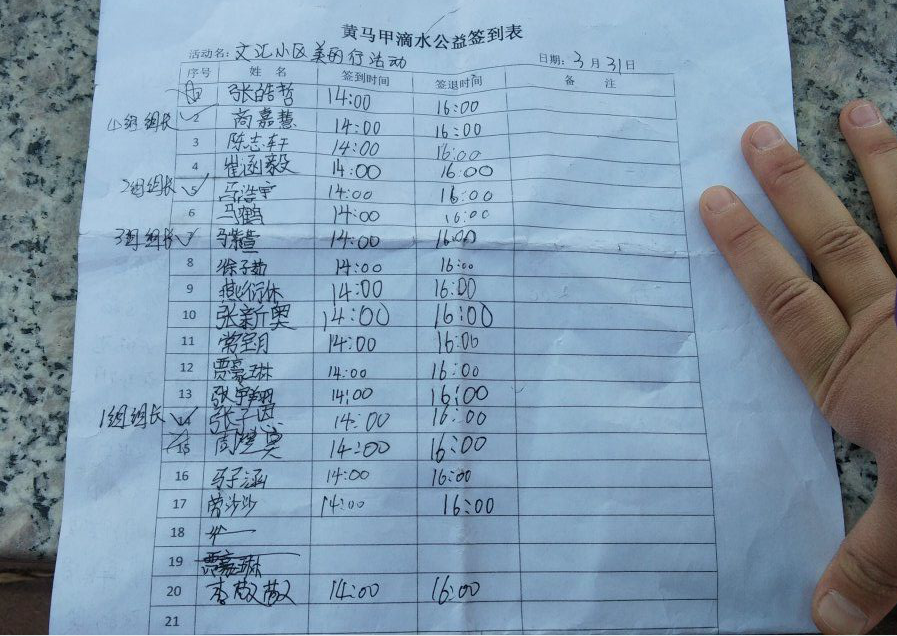 黄马甲滴水公益签到表
活动名：文汇小区美的行活动 日期：3月31日
序号 姓 名 签到时间 签退时间 备 注
张皓哲 14:00 16:00
组长 2 高嘉慧 14:00 16:00
3 陈志轩 14:00 16:00
4 崔涵毅 14:00 16:00
2组组长 5 14:00 16:00
6 马鹤 14:00 16:00
3组组长 7 14:00 16:00
8 徐子茹 14:00 16:00
9 14:00 16:00
10 张新奥 14:00 16:00
11 常宝月 14:00 16:00
12 贾嘉琳 14:00 16:00
13 张宇翔 14:00 16:00
1组组长 14 张子恩 14:00 16:00
15 14:00 16:00
16 马子涵 14:00 16:00
17 劳沙沙 14:00 16:00
18
19 贾嘉琳
20 李敬敬 14:00 16:00
21